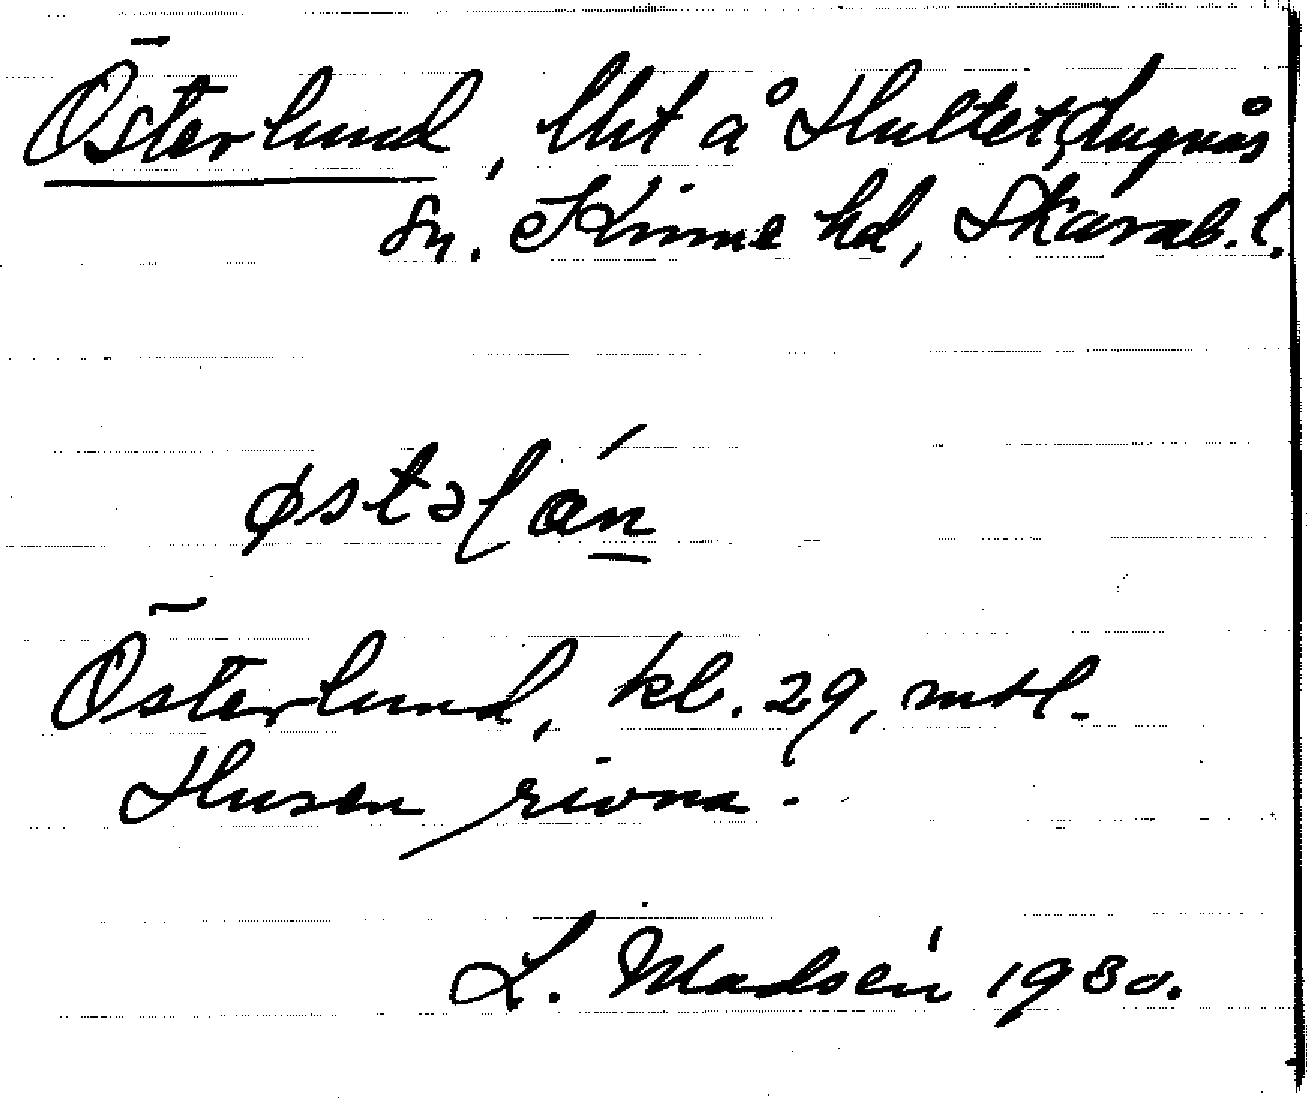 Österlund, lht å Hultet, Lugnås
sn. Kinne hd, Skarab. l.
østəl án
Österlund, kl. 29, mtl.
Husen rivna.
L. Madsén 1930.